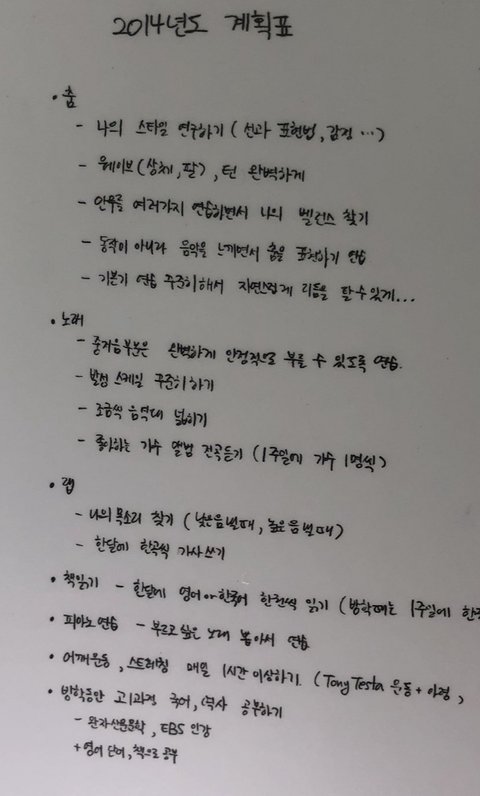 2014년도 계획표
• 춤
- 나의 스타일 연구하기 (선과 표현법, 감정 …)
- 웨이브 (상체, 팔), 턴 완벽하게
- 안무를 여러가지 연습하면서 나의 밸런스 찾기
- 동작이 아니라 음악을 느끼면서 춤을 표현하기 연습
- 기본기 연습 꾸준히해서 자연스럽게 리듬을 탈 수 있게...
• 노래
- 중저음부분은 완벽하게 안정적으로 부를 수 있도록 연습.
- 발성 스케일 꾸준히 하기
- 조금씩 음역대 넓히기
- 좋아하는 가수 앨범 전곡듣기 (1주일에 가수 1명씩)
• 랩
- 나의 목소리 찾기 (낮은음낼때, 높은음낼때)
- 한달에 한곡씩 가사쓰기
• 책읽기 - 한달에 영어 or 한국어 한권씩 읽기 (방학때는 1주일에 한
• 피아노연습 - 부르고 싶은 노래 뽑아서 연습
• 어깨운동, 스트레칭 매일 1시간 이상하기. (Tony Testa 운동 + 아령,
• 방학동안 고1과정 국어, 역사 공부하기
- 완자, EBS 인강
+ 영어 단어, 책으로 공부